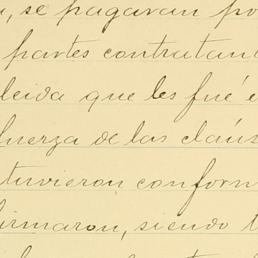 , se pagaran po
partes contratan
leida que les fué e
fuerza de las cláus
tuvieron conform
irmaron, siendo t